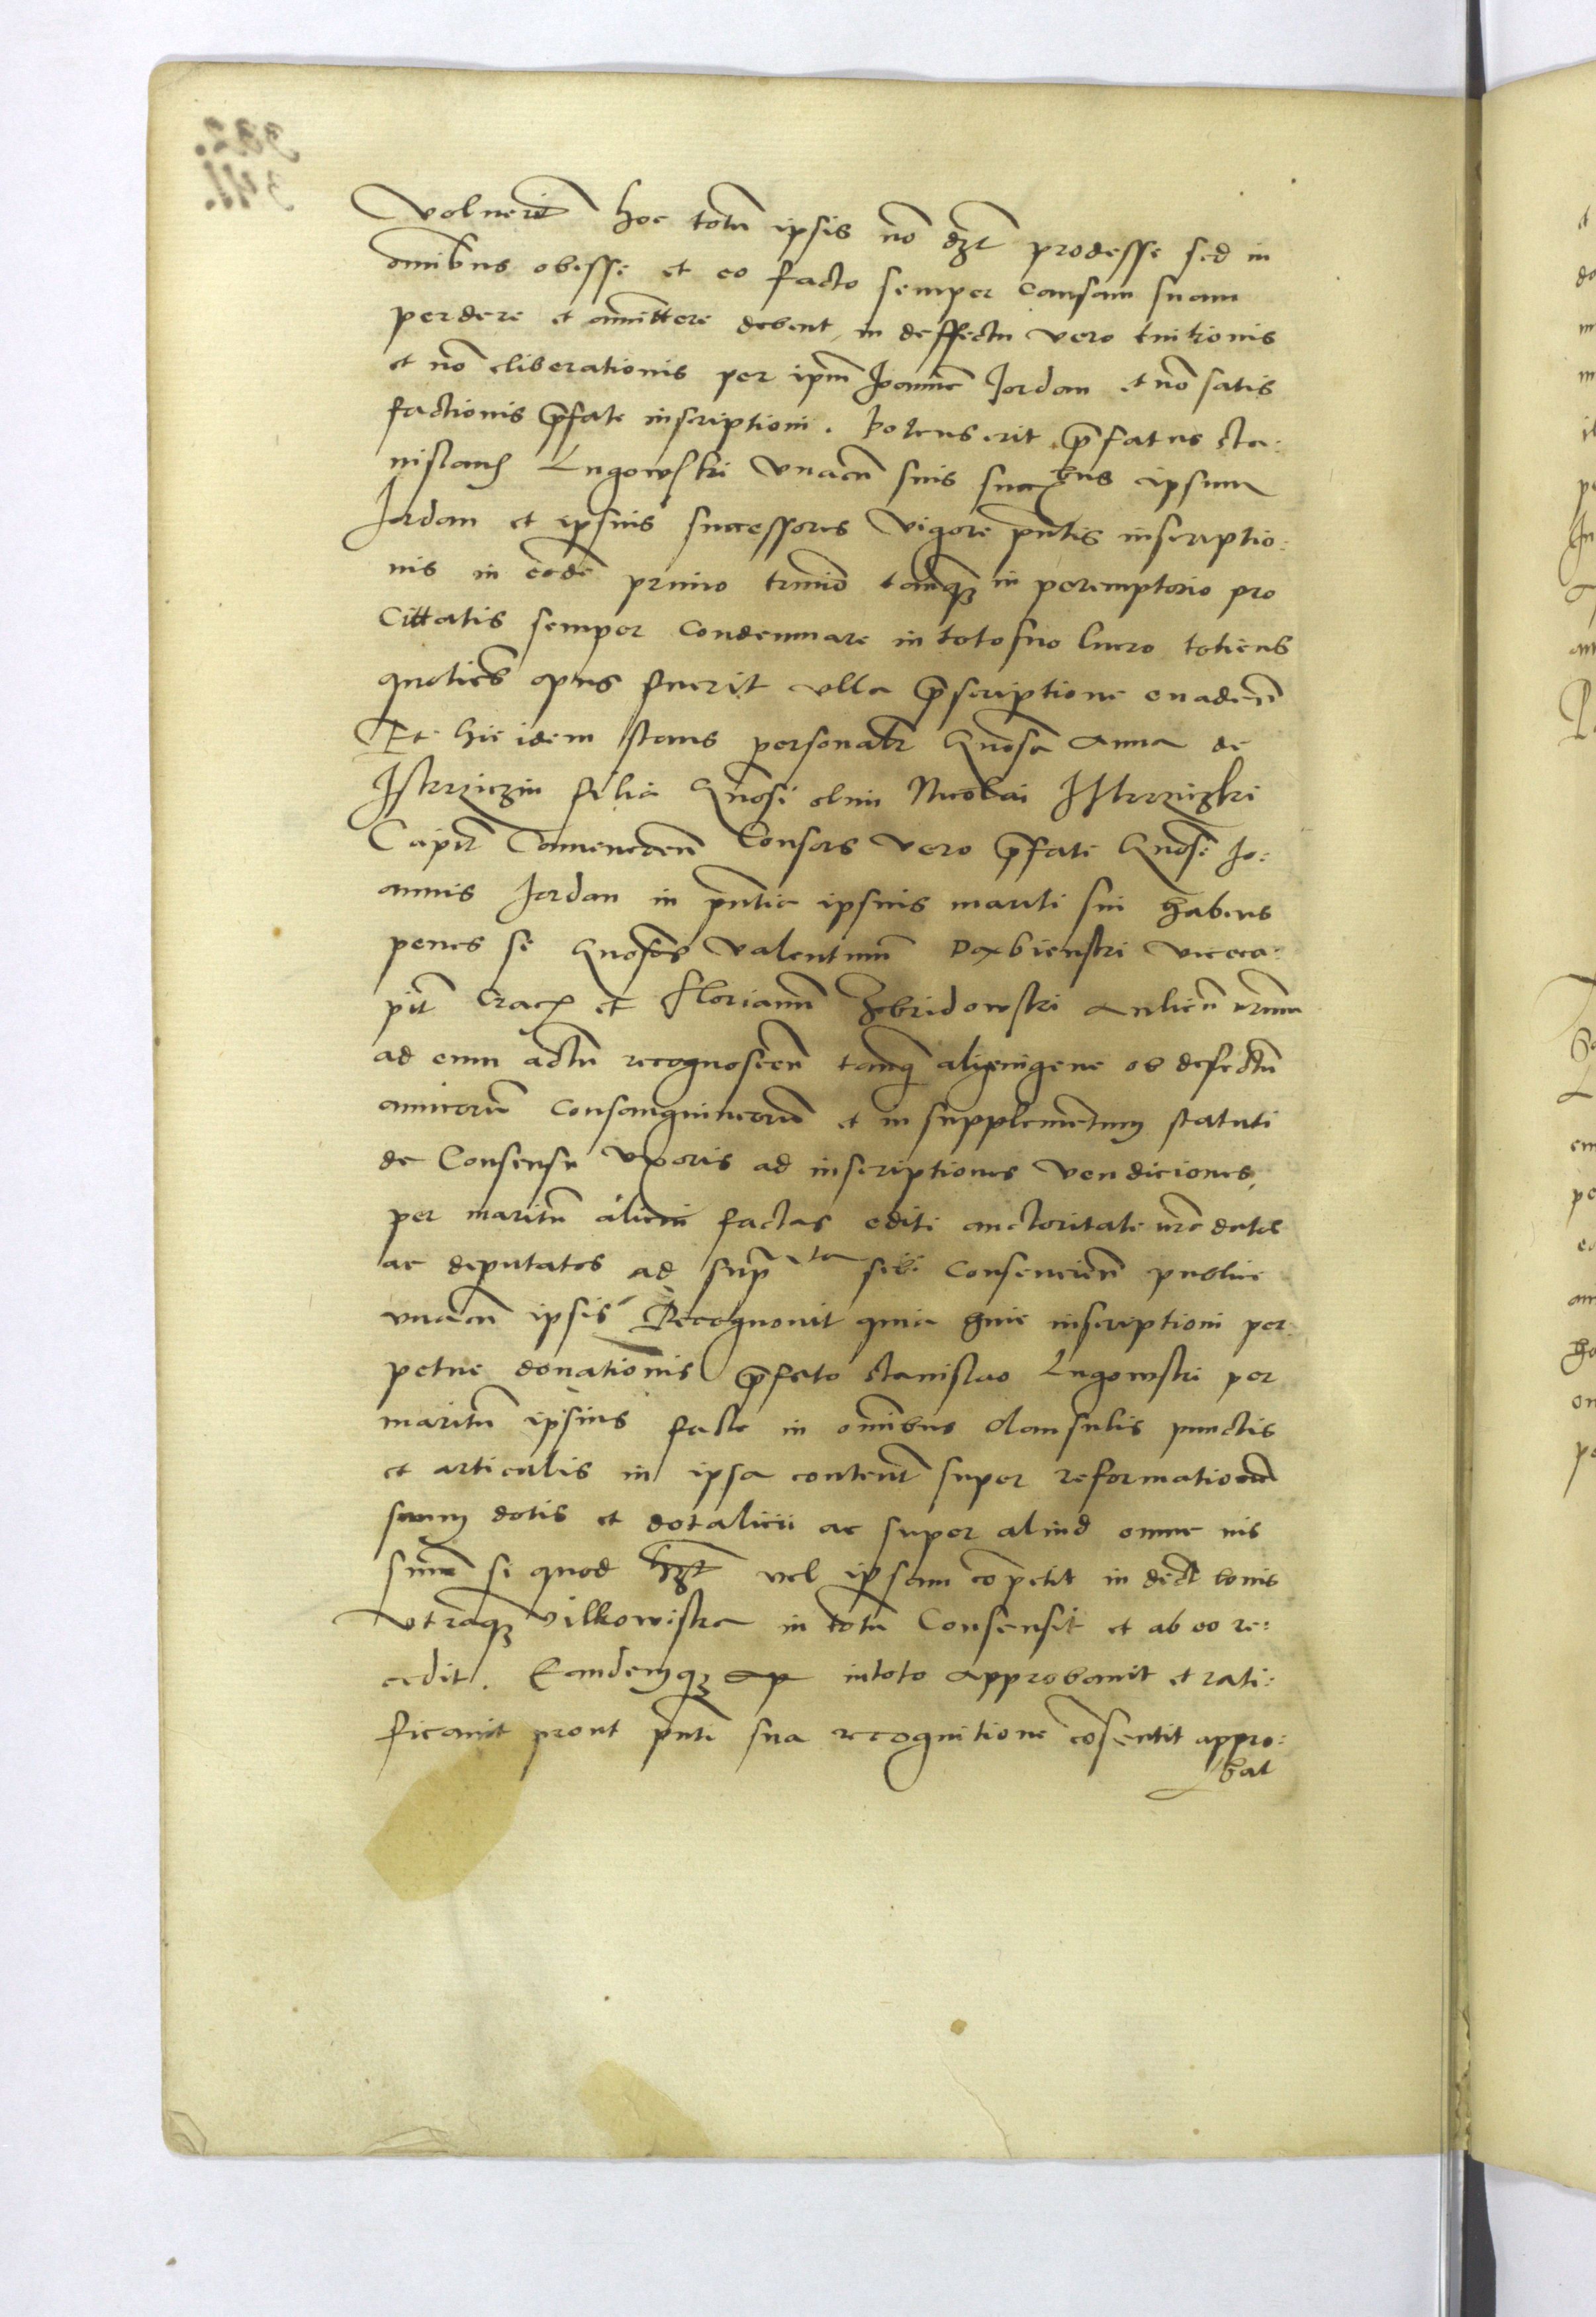 voluerit hoc totū ipsis nō dʒt prodesse sed in
omībus obesse et eo facto semper causam suam
perdere et amittere debent in deffectu vero tuitionis
et nō eliberationis per ipm̄ Ioannē Iordan et nō satis
factionis p̄fate inscriptioni. Potens erit p̄fatus Sta:
nislaus Lugowski vnacū suis succ̄bus ipsum
Iordan et ipsius successores vigore p̄ntis inscriptio:
nis in eodē primo termīo tamqʒ in peremptorio pro
Cittatis semper condemnare in toto suo lucro totiens
quoties opus fuerit vlla p̄scriptione euadeñ
Et hic idem stans personalr̄ Gn̄osa Anna de
filia Gn̄osi olim Nicolai
Capit̄ Camenecen̄ Consors vero p̄fati Gn̄osi Io:
annis Iordan in p̄ntia ipsius mariti sui habens
penes se Gn̄osos Valentinū viceca:
pit̄ Crac̄ et Florianū Zebridowski Aulicū nr̄um
ad eum actū recognosceñ tamq̄ aligenigene ob defectū
amicorū consanguineorū et in supplementum statuti
de Consensu vxoris ad inscriptiones vendiciones
per maritū alicui factas editi auctoritate nrā datos
ac deputatos ad sup̄ta sibi consencieñ publice
vnacū ipsis Recognouit quia huic inscriptioni per:
petue donationis p̄fato Stanislao Lugowski per
maritū ipsius facte in omībus clausulis punctis
et articulis in ipsa content̄ super reformationē
suam dotis et dotalicii ac super aliud omne ius
suum si quod hʒt vel ipsam cōpetit in dict̄ bonis
vtraqʒ Vilkowiska in totū Consensit et ab eo re:
cedit. Eandemqʒ ap in toto approbauit et rati:
ficauit prout p̄nti sua recognitione cōsentit appro:
bat